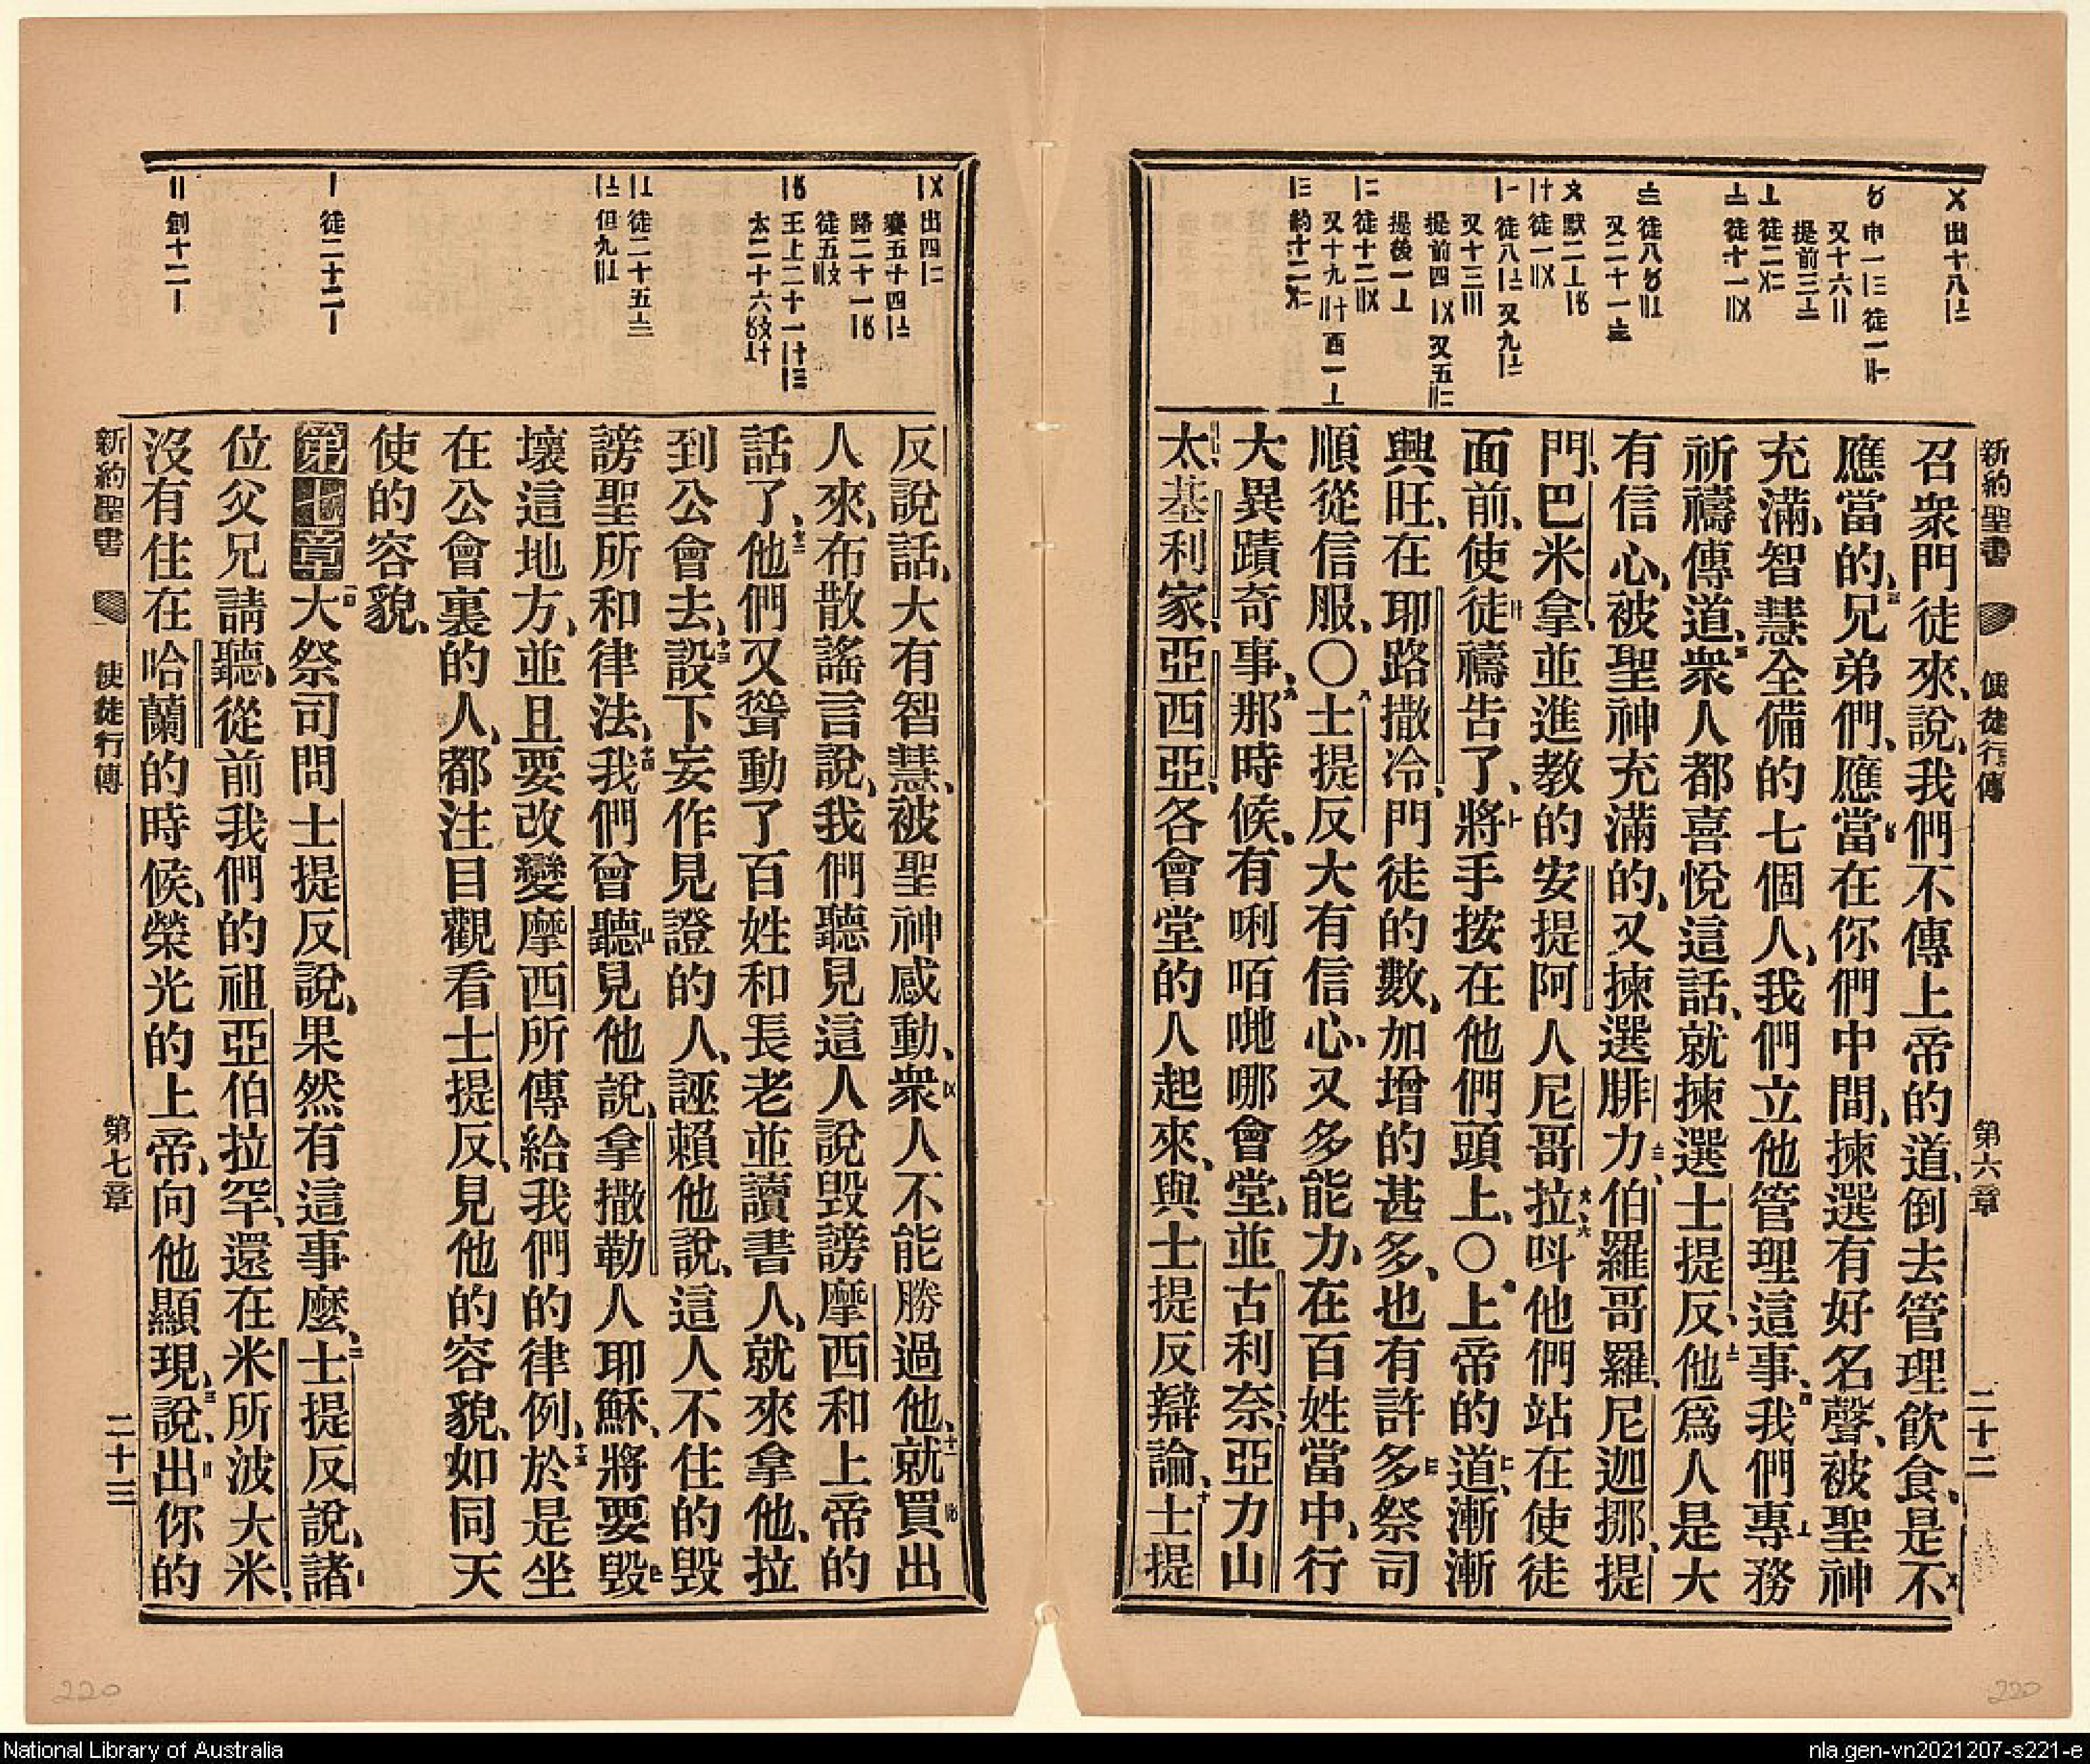 新約聖書 使徒行傳 第六章 二十二
召衆門徒來、說、我們不傳上帝的道、倒去管理飲食、是不
應當的、兄弟們、應當在你們中間、揀選有好名聲、被聖神
充滿、智慧全備的七個人、我們立他管理這事、我們專務
祈禱傳道、衆人都喜悅這話、就揀選士提反、他爲人是大
有信心、被聖神充滿的、又揀選腓力伯羅哥羅、尼迦挪、提
門、巴米拿、並進教的安提阿人尼哥拉、呌他們站在使徒
面前、使徒禱告了、將手按在他們頭上、〇上帝的道、漸漸
興旺、在耶路撒冷、門徒的數、加增的甚多、也有許多祭司
順從信服、〇士提反大有信心、又多能力、在百姓當中、行
大異蹟奇事、那時候、有唎咟哋哪會堂、並古利奈、亞力山
太、基利家、亞西亞、各會堂的人起來、與士提反辯論、士提
出十八
又十六
提前三
徒二
徒十一
徒八
又二十一
默二
徒一
徒八 又九
又十三
提前四 又五
提後一
徒十二
又十九 西一
約十二
反說話、大有智慧、被聖神感動、衆人不能勝過他、就買出
人來、布散謠言說、我們聽見這人說毀謗摩西和上帝的
話了、他們又聳動了百姓和長老並讀書人、就來拿他、拉
到公會去、設下妄作見證的人、誣賴他說、這人不住的毀
謗聖所和律法、我們曾聽見他說、拿撒勒人耶穌、將要毀
壞這地方、並且要改變摩西所傳給我們的律例、於是坐
在公會裏的人、都注目觀看士提反、見他的容貌、如同天
使的容貌、
第七章 大祭司問士提反說、果然有這事麽、士提反說、諸
位父兄請聽、從前我們的祖亞伯拉罕、還在米所波大米、
沒有住在哈蘭的時候、榮光的上帝、向他顯現、說、出你的
出四
賽五十四
路二十一
徒五
王上二十一
太二十六
徒二十五
但九
徒二十二
創十二
新約聖書 使徒行傳 第七章 二十三
220
220
National Library of Australia
nla.gen-vn2021207-s221-e